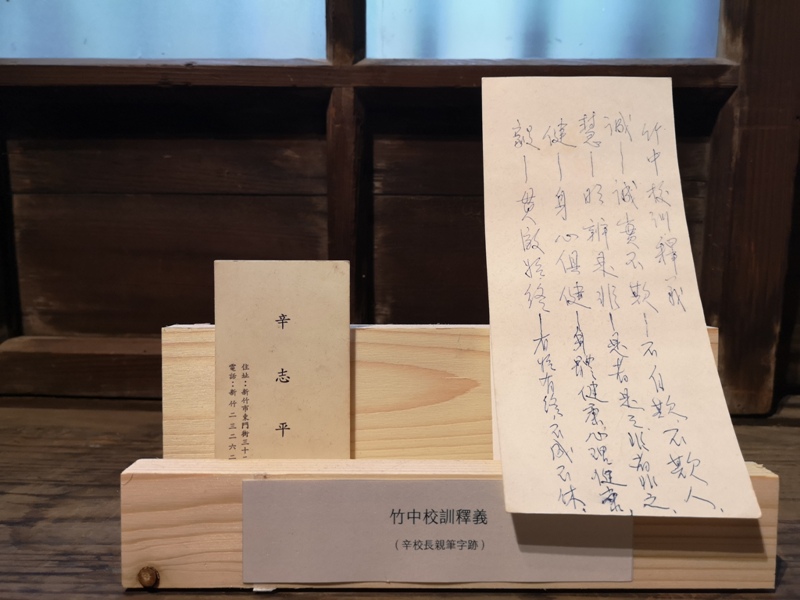 竹中校訓釋義
誠－誠實不欺－不自欺不欺人。
慧－明辨是非－是者是之非者非之。
健－身心俱健－身體健康心理健康。
毅－貫徹始終－有始有終不成不休。
辛志平
住址：新竹市東門街三十
電話：新竹二三二六二
竹中校訓釋義
（辛校長親筆字跡）